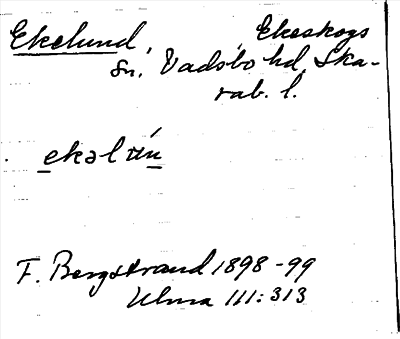 Ekelund, Ekeskogs
sn. Vadsbo hd, Ska-
rab. l.
F. Bergstrand 1898-99
Ulma 111:313